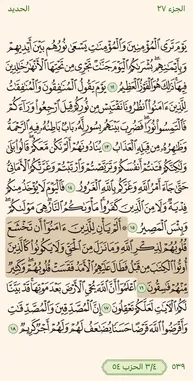 الجزء ٢٧ الحديد
يَوْمَ تَرَى الْمُؤْمِنِينَ وَالْمُؤْمِنَاتِ يَسْعَى نُورُهُم بَيْنَ أَيْدِيهِمْ
وَبِأَيْمَانِهِم بُشْرَاكُمُ الْيَوْمَ جَنَّاتٌ تَجْرِي مِن تَحْتِهَا الْأَنْهَارُ خَالِدِينَ
فِيهَا ذَلِكَ هُوَ الْفَوْزُ الْعَظِيمُ ١٢ يَوْمَ يَقُولُ الْمُنَافِقُونَ وَالْمُنَافِقَاتُ
لِلَّذِينَ آمَنُوا انظُرُونَا نَقْتَبِسْ مِن نُّورِكُمْ قِيلَ ارْجِعُوا وَرَاءَكُمْ
فَالْتَمِسُوا نُورًا فَضُرِبَ بَيْنَهُم بِسُورٍ لَّهُ بَابٌ بَاطِنُهُ فِيهِ الرَّحْمَةُ
وَظَاهِرُهُ مِن قِبَلِهِ الْعَذَابُ ١٣ يُنَادُونَهُمْ أَلَمْ نَكُن مَّعَكُمْ قَالُوا بَلَى
وَلَكِنَّكُمْ فَتَنتُمْ أَنفُسَكُمْ وَتَرَبَّصْتُمْ وَارْتَبْتُمْ وَغَرَّتْكُمُ الْأَمَانِيُّ
حَتَّى جَاءَ أَمْرُ اللَّهِ وَغَرَّكُم بِاللَّهِ الْغَرُورُ ١٤ فَالْيَوْمَ لَا يُؤْخَذُ مِنكُمْ
فِدْيَةٌ وَلَا مِنَ الَّذِينَ كَفَرُوا مَأْوَاكُمُ النَّارُ هِيَ مَوْلَاكُمْ
وَبِئْسَ الْمَصِيرُ ١٥ أَلَمْ يَأْنِ لِلَّذِينَ آمَنُوا أَن تَخْشَعَ
قُلُوبُهُمْ لِذِكْرِ اللَّهِ وَمَا نَزَلَ مِنَ الْحَقِّ وَلَا يَكُونُوا كَالَّذِينَ
أُوتُوا الْكِتَابَ مِن قَبْلُ فَطَالَ عَلَيْهِمُ الْأَمَدُ فَقَسَتْ قُلُوبُهُمْ وَكَثِيرٌ
مِّنْهُمْ فَاسِقُونَ ١٦ اعْلَمُوا أَنَّ اللَّهَ يُحْيِي الْأَرْضَ بَعْدَ مَوْتِهَا قَدْ بَيَّنَّا
لَكُمُ الْآيَاتِ لَعَلَّكُمْ تَعْقِلُونَ ١٧ إِنَّ الْمُصَّدِّقِينَ وَالْمُصَّدِّقَاتِ
وَأَقْرَضُوا اللَّهَ قَرْضًا حَسَنًا يُضَاعَفُ لَهُمْ وَلَهُمْ أَجْرٌ كَرِيمٌ ١٨
٥٣٩ ٣/٤ الحزب ٥٤